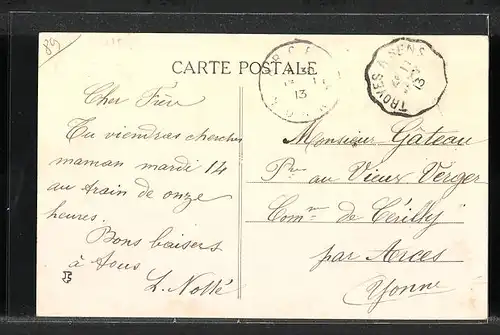 89
CARTE POSTALE
TROYES A SENS
13
13
Cher Frère
Tu viendras chercher
maman mardi 14
au train de onze
heures.
Bons baisers
à tous
L. Nollé
Monsieur Gâteau
Pre au Vieux Verger
Comne de Cérilly
par Arces
Yonne